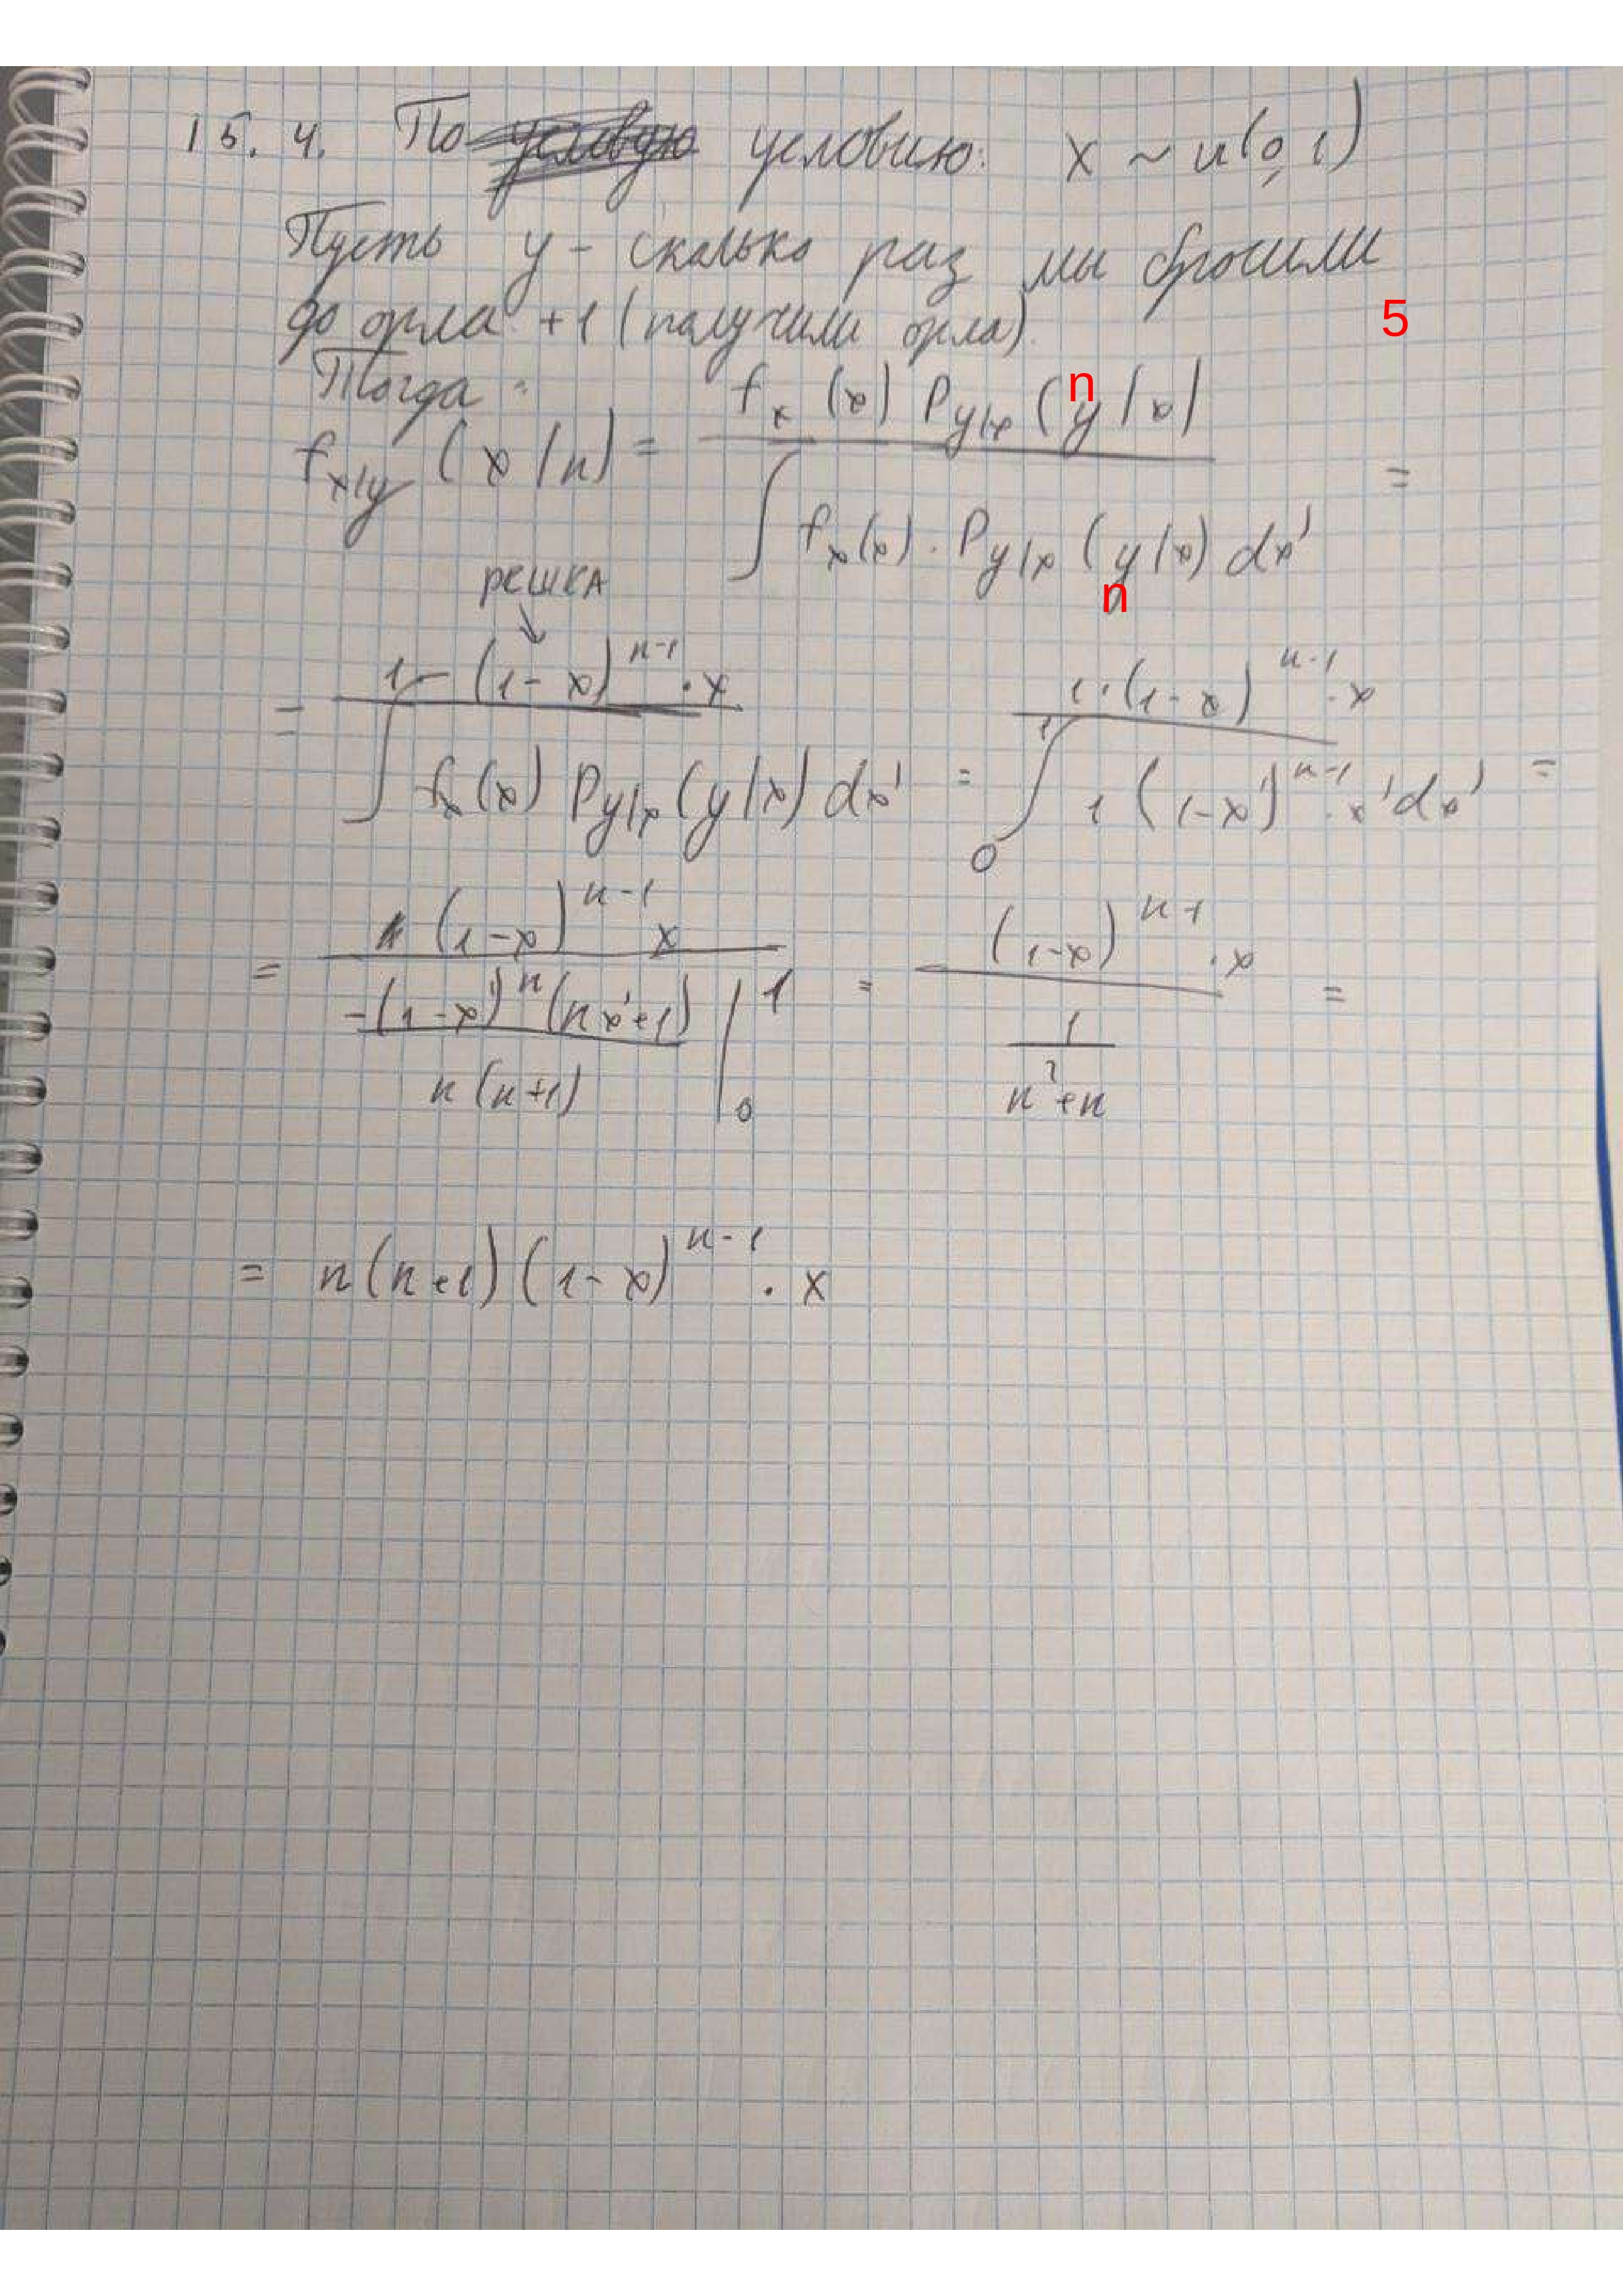 15.4. По условию: x ~ u(0,1)
Пусть y - сколько раз мы бросили
до орла +1 (получили орла). 5
Тогда: n
f_{x|y} (x|n) = \frac{f_x(x) P_{y|x}(y|x)}{\int f_x(x) \cdot P_{y|x}(y|x) dx'} =
n
РЕШКА
↓
= \frac{1 \cdot (1-x)^{n-1} \cdot x}{\int f_x(x) P_{y|x}(y|x) dx'} = \frac{1 \cdot (1-x)^{n-1} \cdot x}{\int_0^1 1 (1-x')^{n-1} \cdot x' dx'} =
= \frac{(1-x)^{n-1} x}{\frac{-(1-x')^n (nx'+1)}{n(n+1)} |_0^1} = \frac{(1-x)^{n-1} \cdot x}{\frac{1}{n^2+n}} =
= n(n+1)(1-x)^{n-1} \cdot x